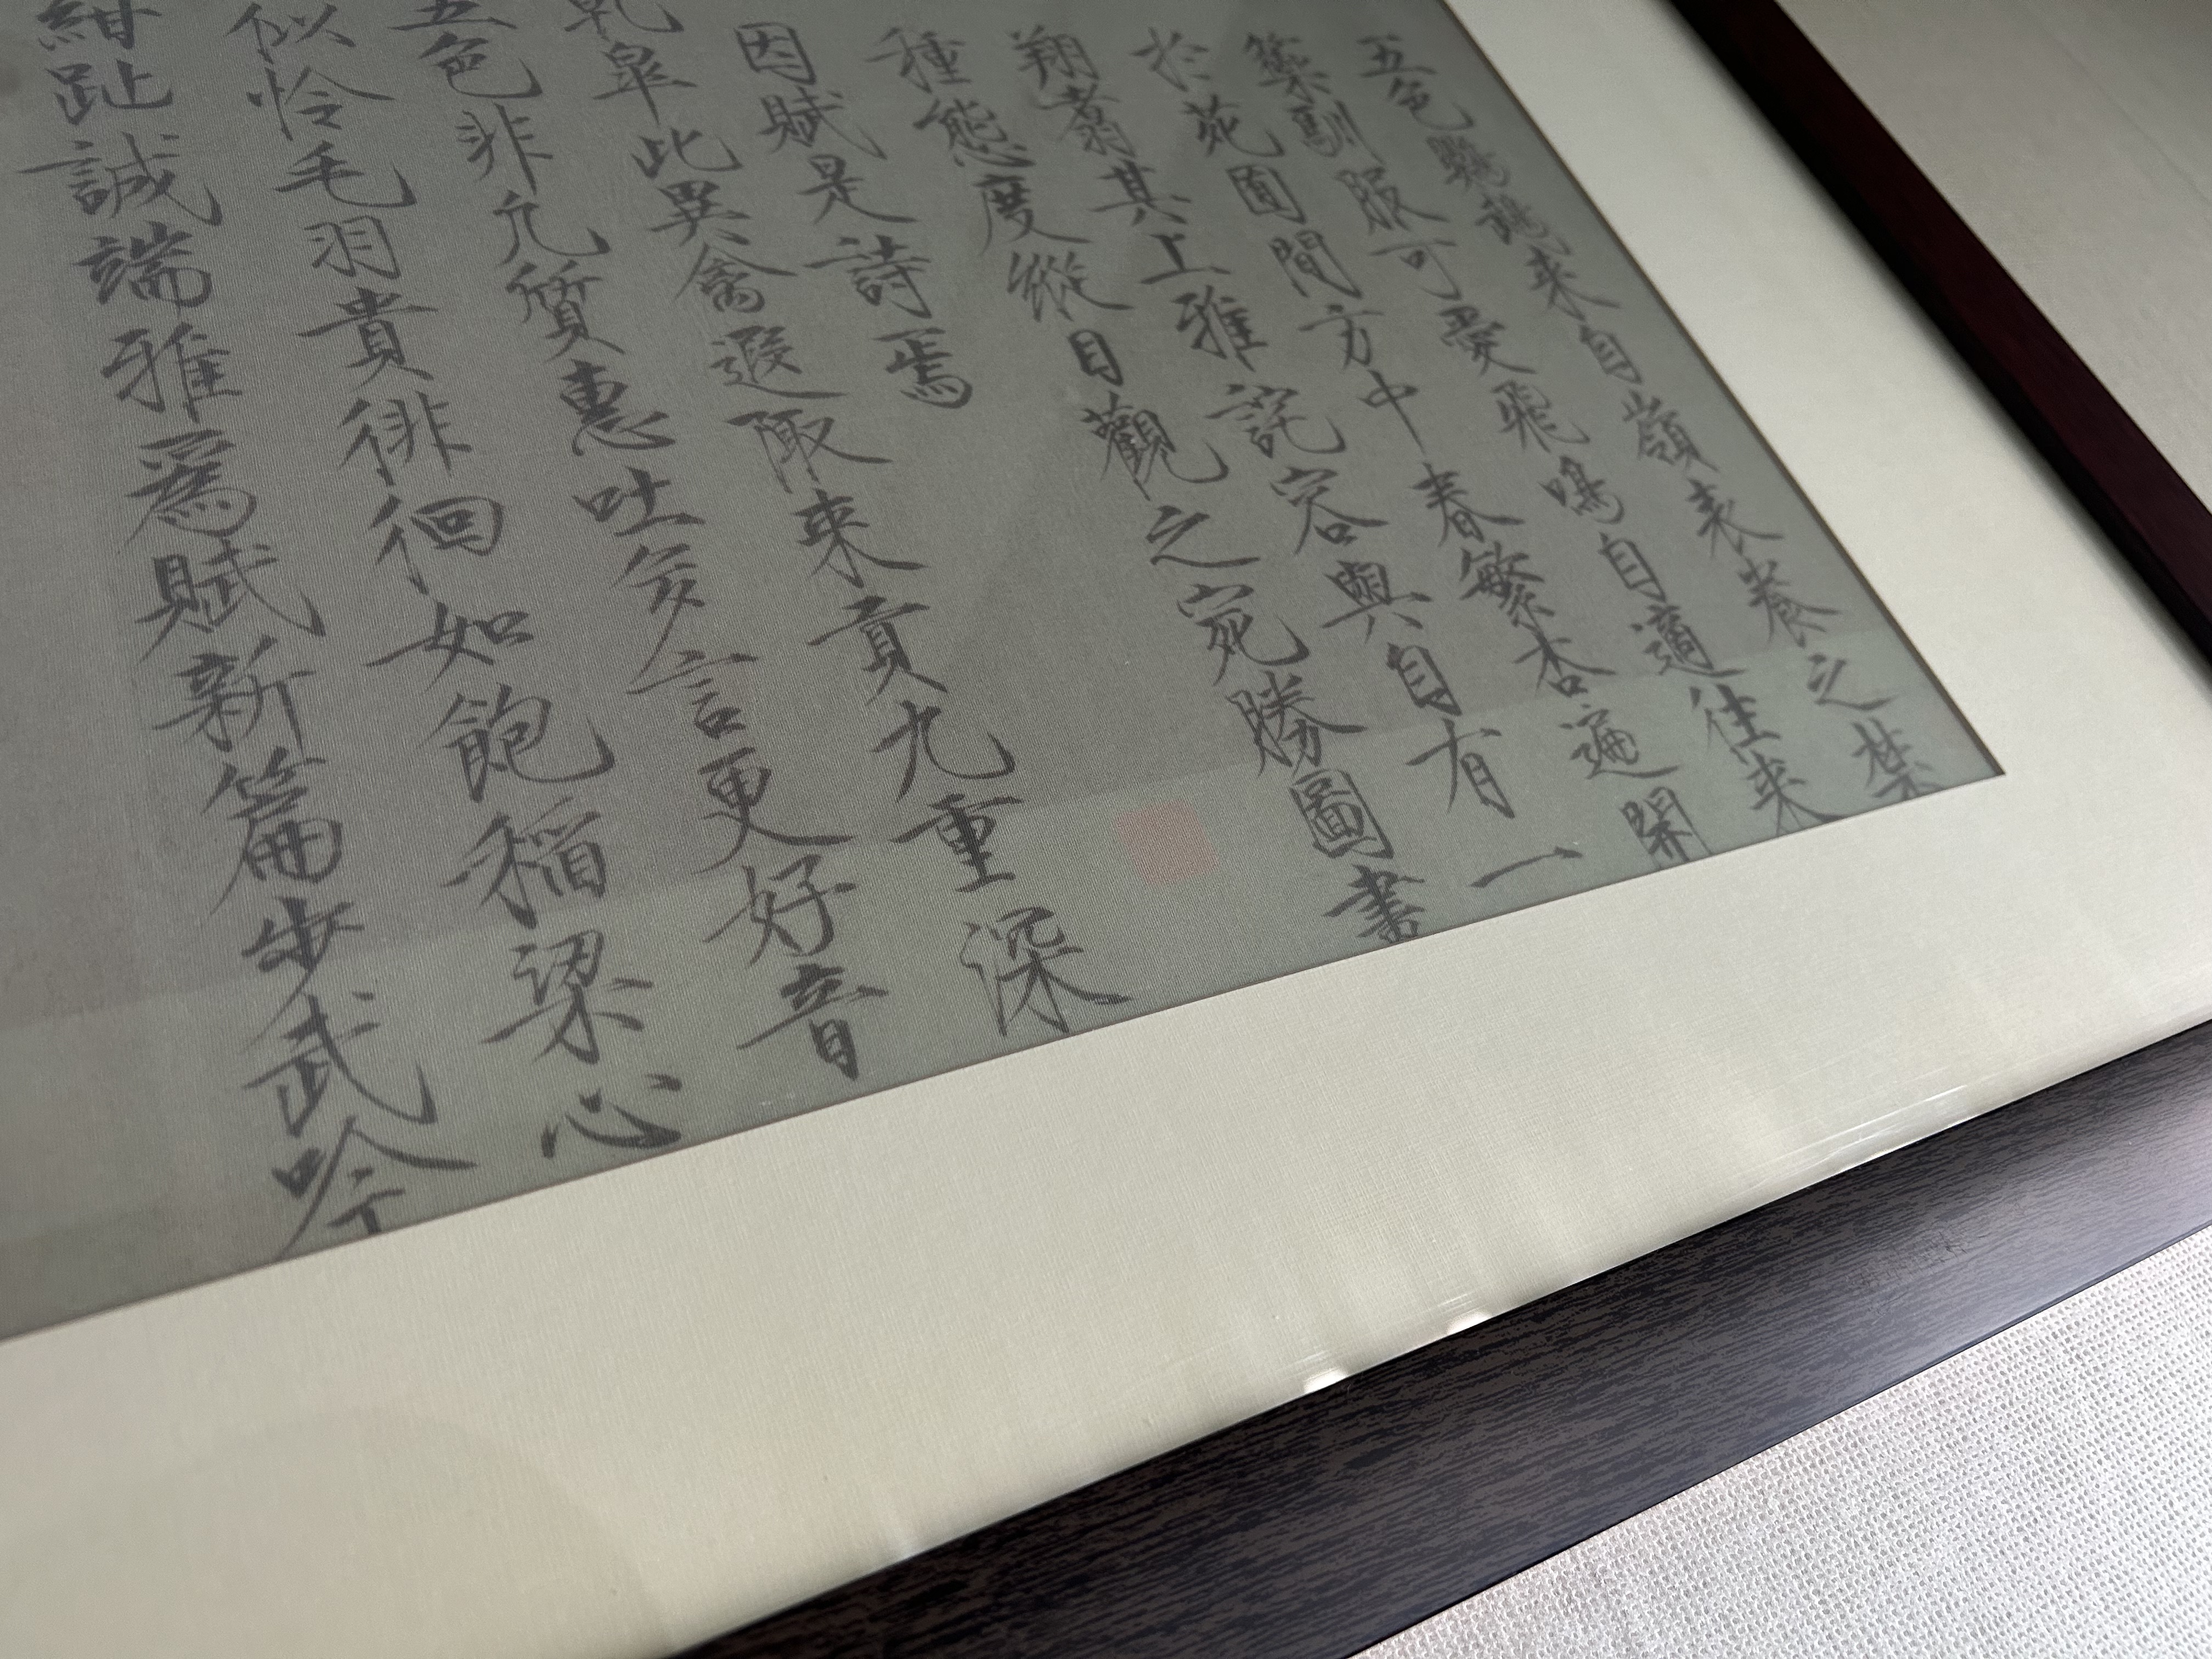 五色鸚鵡來自嶺表養之禁
籞馴服可愛飛鳴自適往來
於苑囿間方中春繁杏遍開
翔翥其上雅詫容與自有一
種態度縱目觀之宛勝圖畫
因賦是詩焉
乾皋此異禽遐陬來貢九重深
五色非凡質惠吐多言更好音
似怜毛羽貴徘徊如飽稻粱心
紺趾誠端雅爲賦新篇步武吟